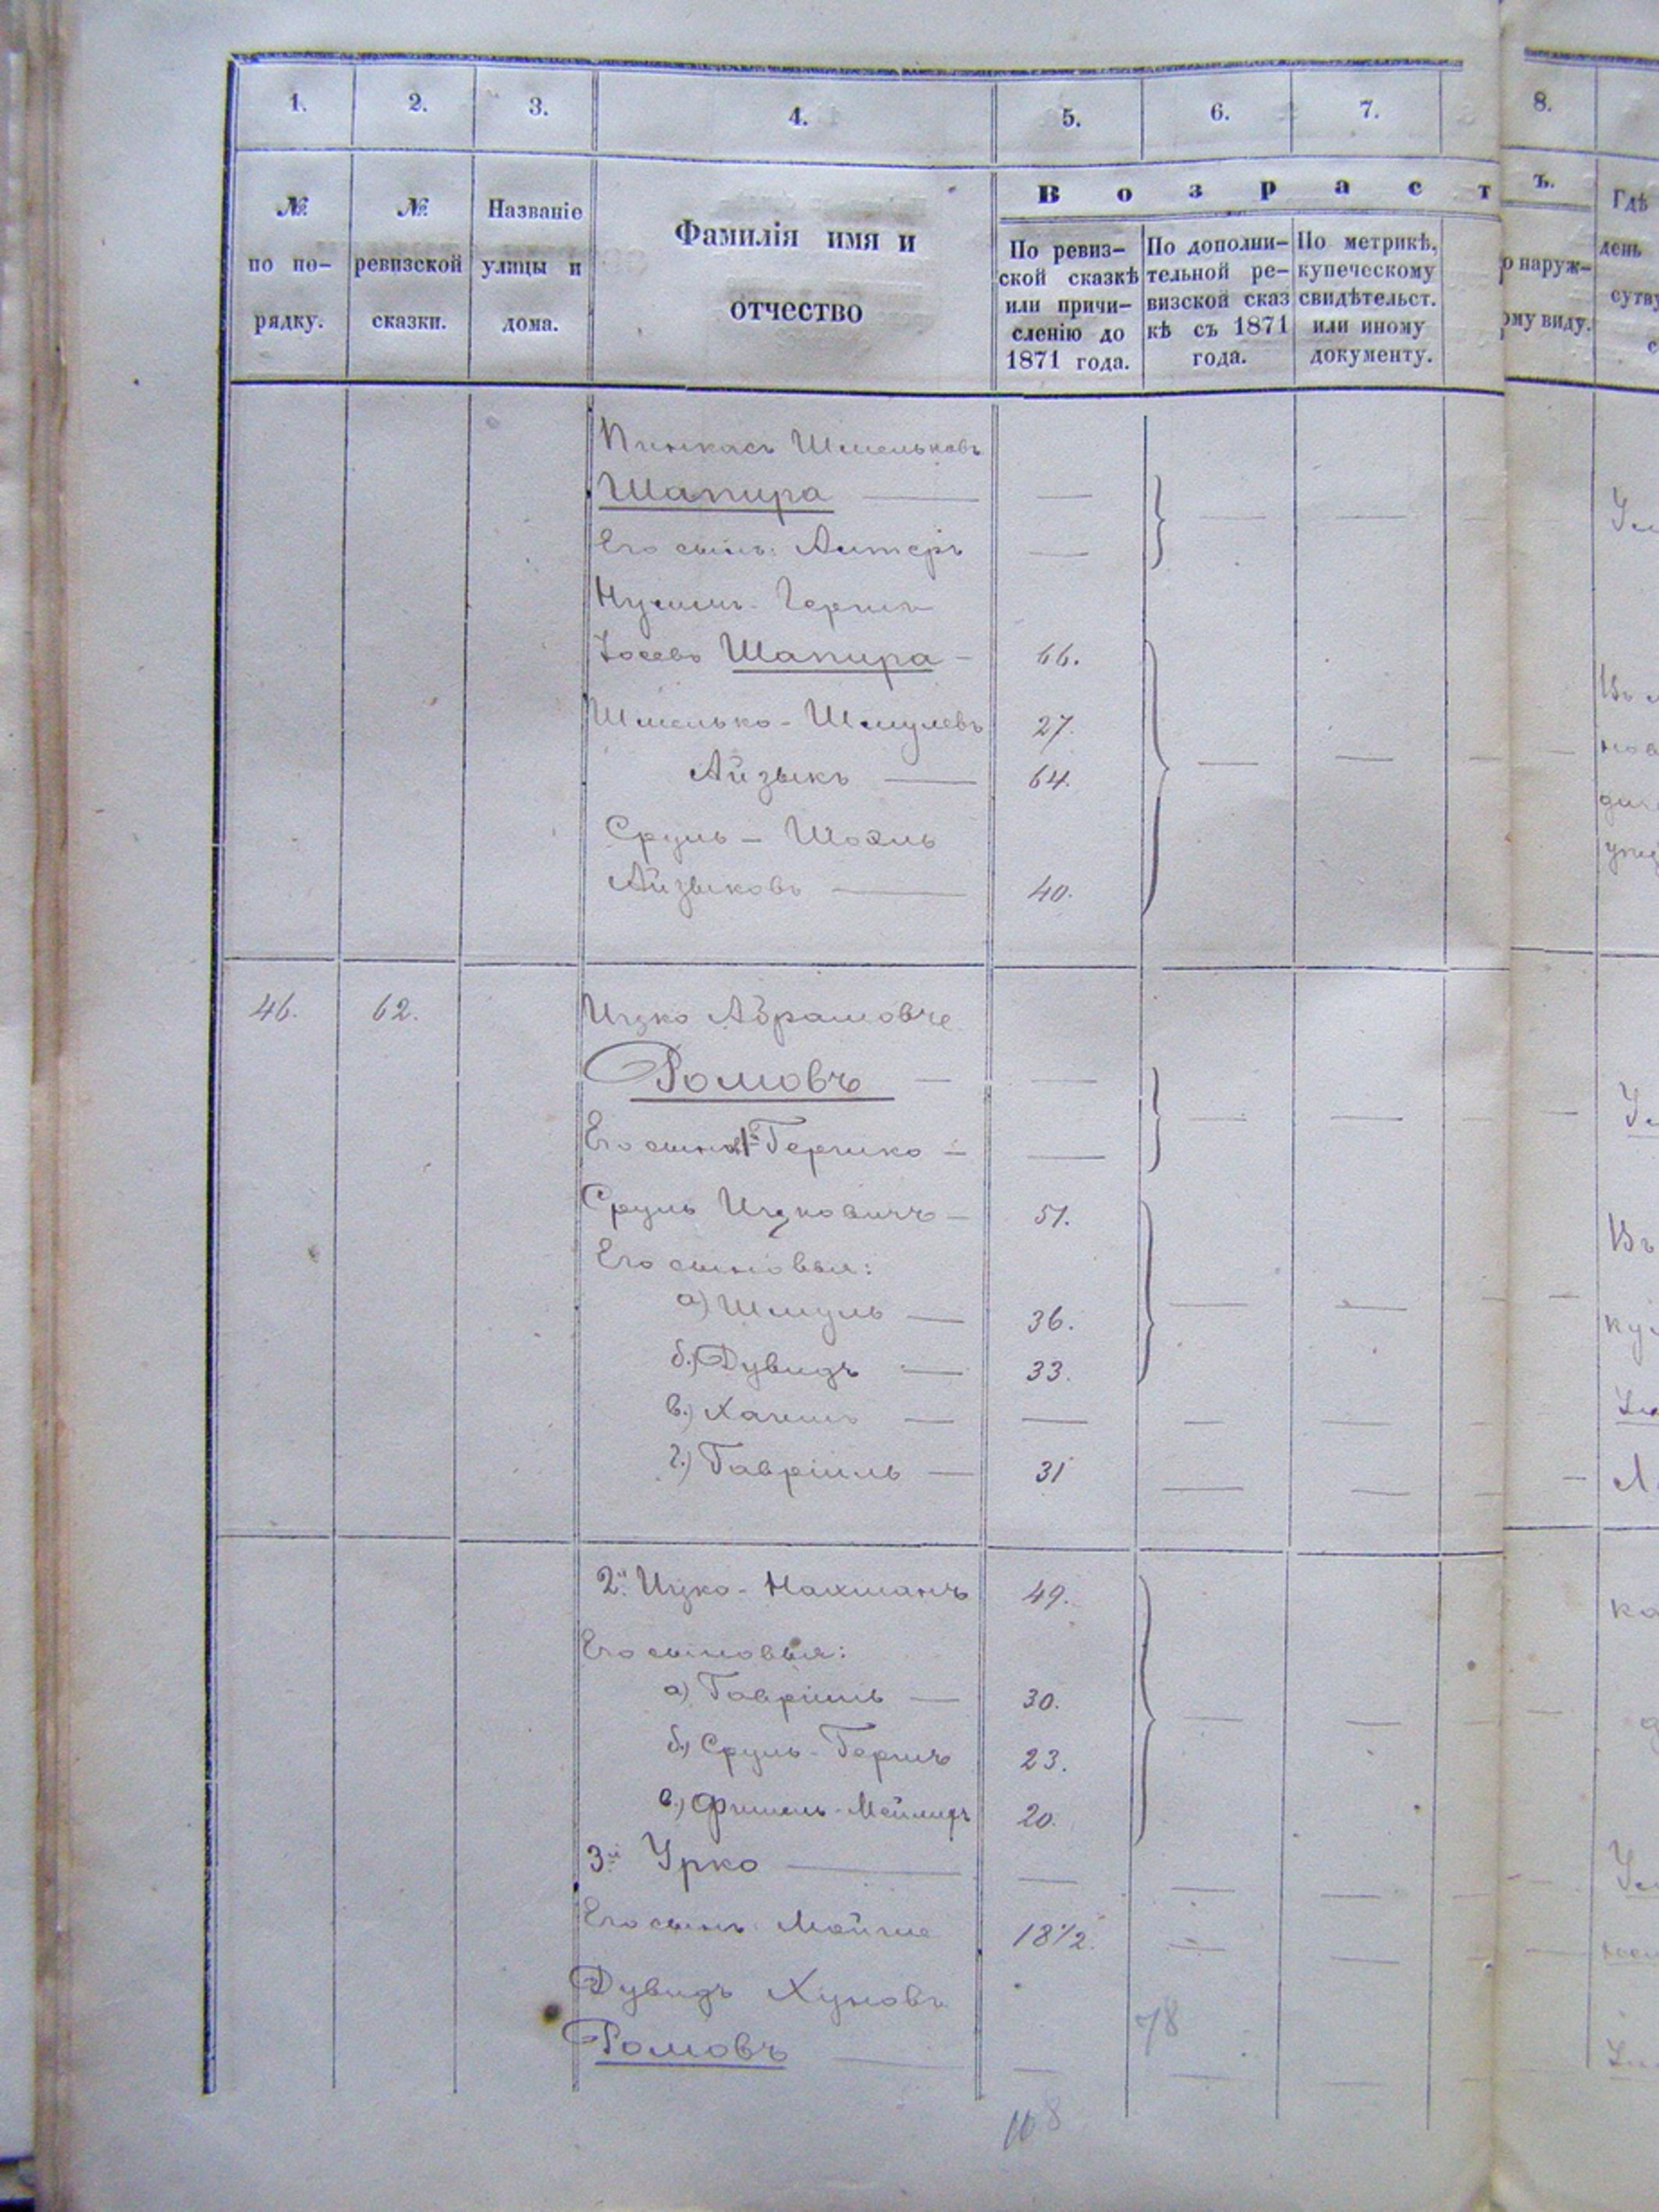 1. 2. 3. 4. 5. 6. 7. 8.
№ по по-рядку.
№ ревизской сказки.
Названіе улицы и дома.
Фамилія имя и отчество
Возраст
ъ.
По ревиз-
ской сказкѣ
или причи-
сленію до
1871 года.
По дополни-
тельной ре-
визской сказ
кѣ съ 1871
года.
По метрикѣ,
купеческому
свидѣтельст.
или иному
документу.
о наруж-
ому виду.
Гдѣ
день
Пинкасъ Шмельковъ
Шапира — —
Его сынъ: Алтеръ —
Нусинъ-Гершъ
Іосевъ Шапира - 66.
Шмелько-Шмулевъ 27.
Айзыкъ — 64.
Сруль-Шоэль
Айзыковъ — 40.
46. 62. Ицко Абрамовъ
Ромовъ — —
Его сыновья 1й Гершко — —
Сруль Ицковичъ — 51.
Его сыновья:
а) Шмуль — 36.
б.) Дувидъ — 33.
в.) Хаимъ — —
г.) Гавріиль — 31
2й. Ицко-Нахманъ 49.
Его сыновья:
а) Гавріиль — 30.
б.) Сруль-Гершъ 23.
в.) Фишель-Мейлихъ 20.
3й Урко — —
Его сынъ Мойше 18½.
Дувидъ Хуновъ
Ромовъ — —
78
168